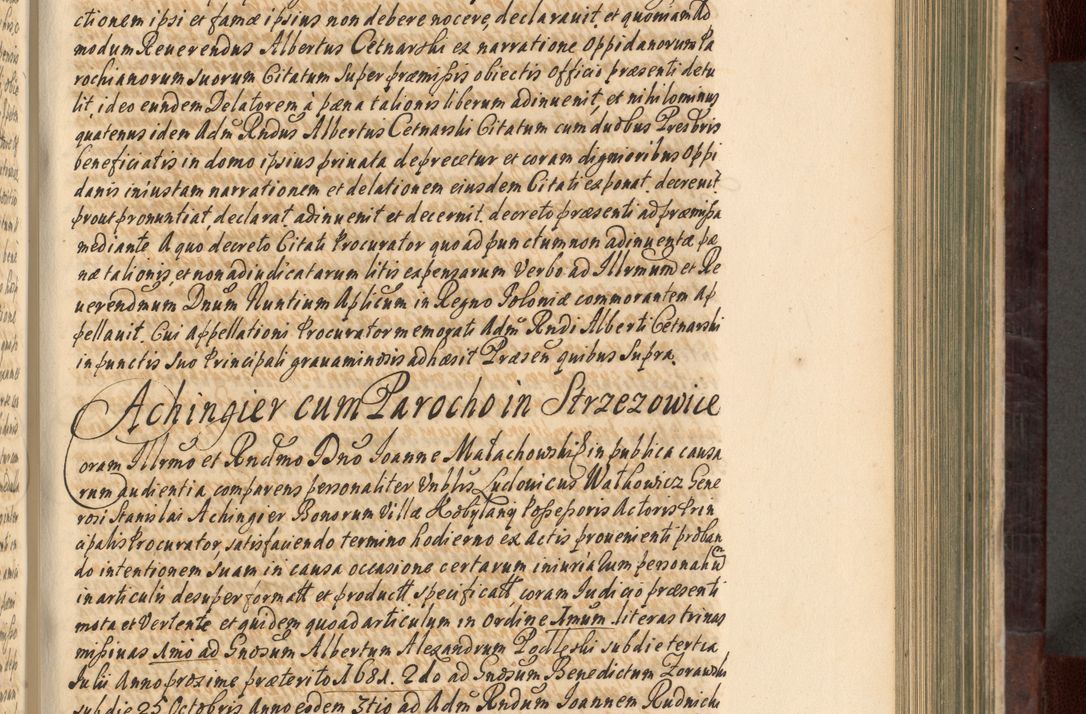 ctionem ipsi et famæ ipsius non debere nocere, declarauit et quoniam Ad
modum Reuerendus Albertus Cetnarski ex narratione Oppidanorum Pa
rochianorum suorum Citatum super præmissis obiectis Officio præsenti detu
lit, ideo eundem Delatorem à pæna talionis liberum adinuenit, et nihilominus
quatenus idem Adm̃ Rndus Albertus Cetnarski Citatum cum duobus Presbris
beneficiatis in domo ipsius priuata deprecetur et coram dignioribus Oppi
danis iniustam narrationem et delationem eiusdem Citati exponat, decreuit
prout pronuntiat, declarat adinuenit et decernit, decreto præsenti ad præmissa
mediante. A quo decreto Citati Procurator quo ad punctum non adinuentæ pæ
næ talionis, et non adiudicatarum litis expensarum Verbo ad Illrmum et Re
uerendmum Dnum Nuntium Aplicum in Regno Poloniæ commorantem Ap
pellauit. Cui Appellationi Procurator memorati Adm̃ Rndi Alberti Cetnarski
in punctis suo Principali grauaminosis adhæsit Præsen̄ quibus supra.
Achingier cum Parocho in Strzezowice
Coram Illrmo et Rndmo Dno Ioanne Małachowski in publica causa
rum audientia, comparens personaliter Vnblis Ludouicus Wałkowicz Gene
rosi Stanislai Achingier Bonorum Villæ Kobylany Possessoris Actoris Prin
cipalis Procurator, satisfaciendo termino hodierno ex actis prouenienti proban
do intentionem suam in causa occasione certarum iniuriarum personaliū
in articulis desuper formatt et productt specificatt, coram Iudicio præsenti
mota et Vertente et quidem quo ad articulum in Ordine Imum literas trinas
missiuas Imò ad Gnosum Albertum Alexandrum Podleski sub die tertia
Iulii Anno proxime præterito 1681. 2do ad Gnosum Benedictum Zorawski
sub die 25 Octobris Anno eodem 3tio ad Adm̃ Rndum Ioannem Rudnicki